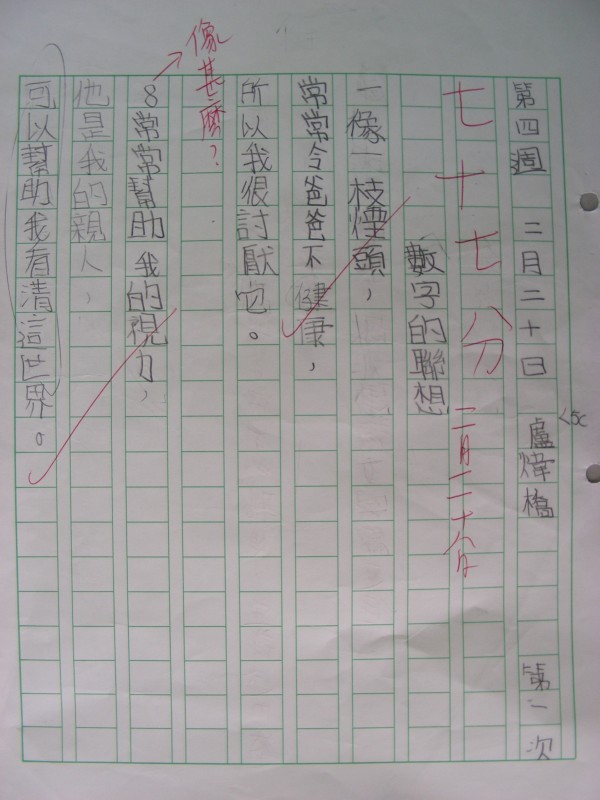 第四週 二月二十日 盧煒橋 第一次
<5c
七十七分 二月二十分
數字的聯想
一像一枝煙頭，
常常令爸爸不健康，
所以我很討厭它。
像甚麼？
8常常幫助我的視力，
他是我的親人，
可以幫助我看清這世界。